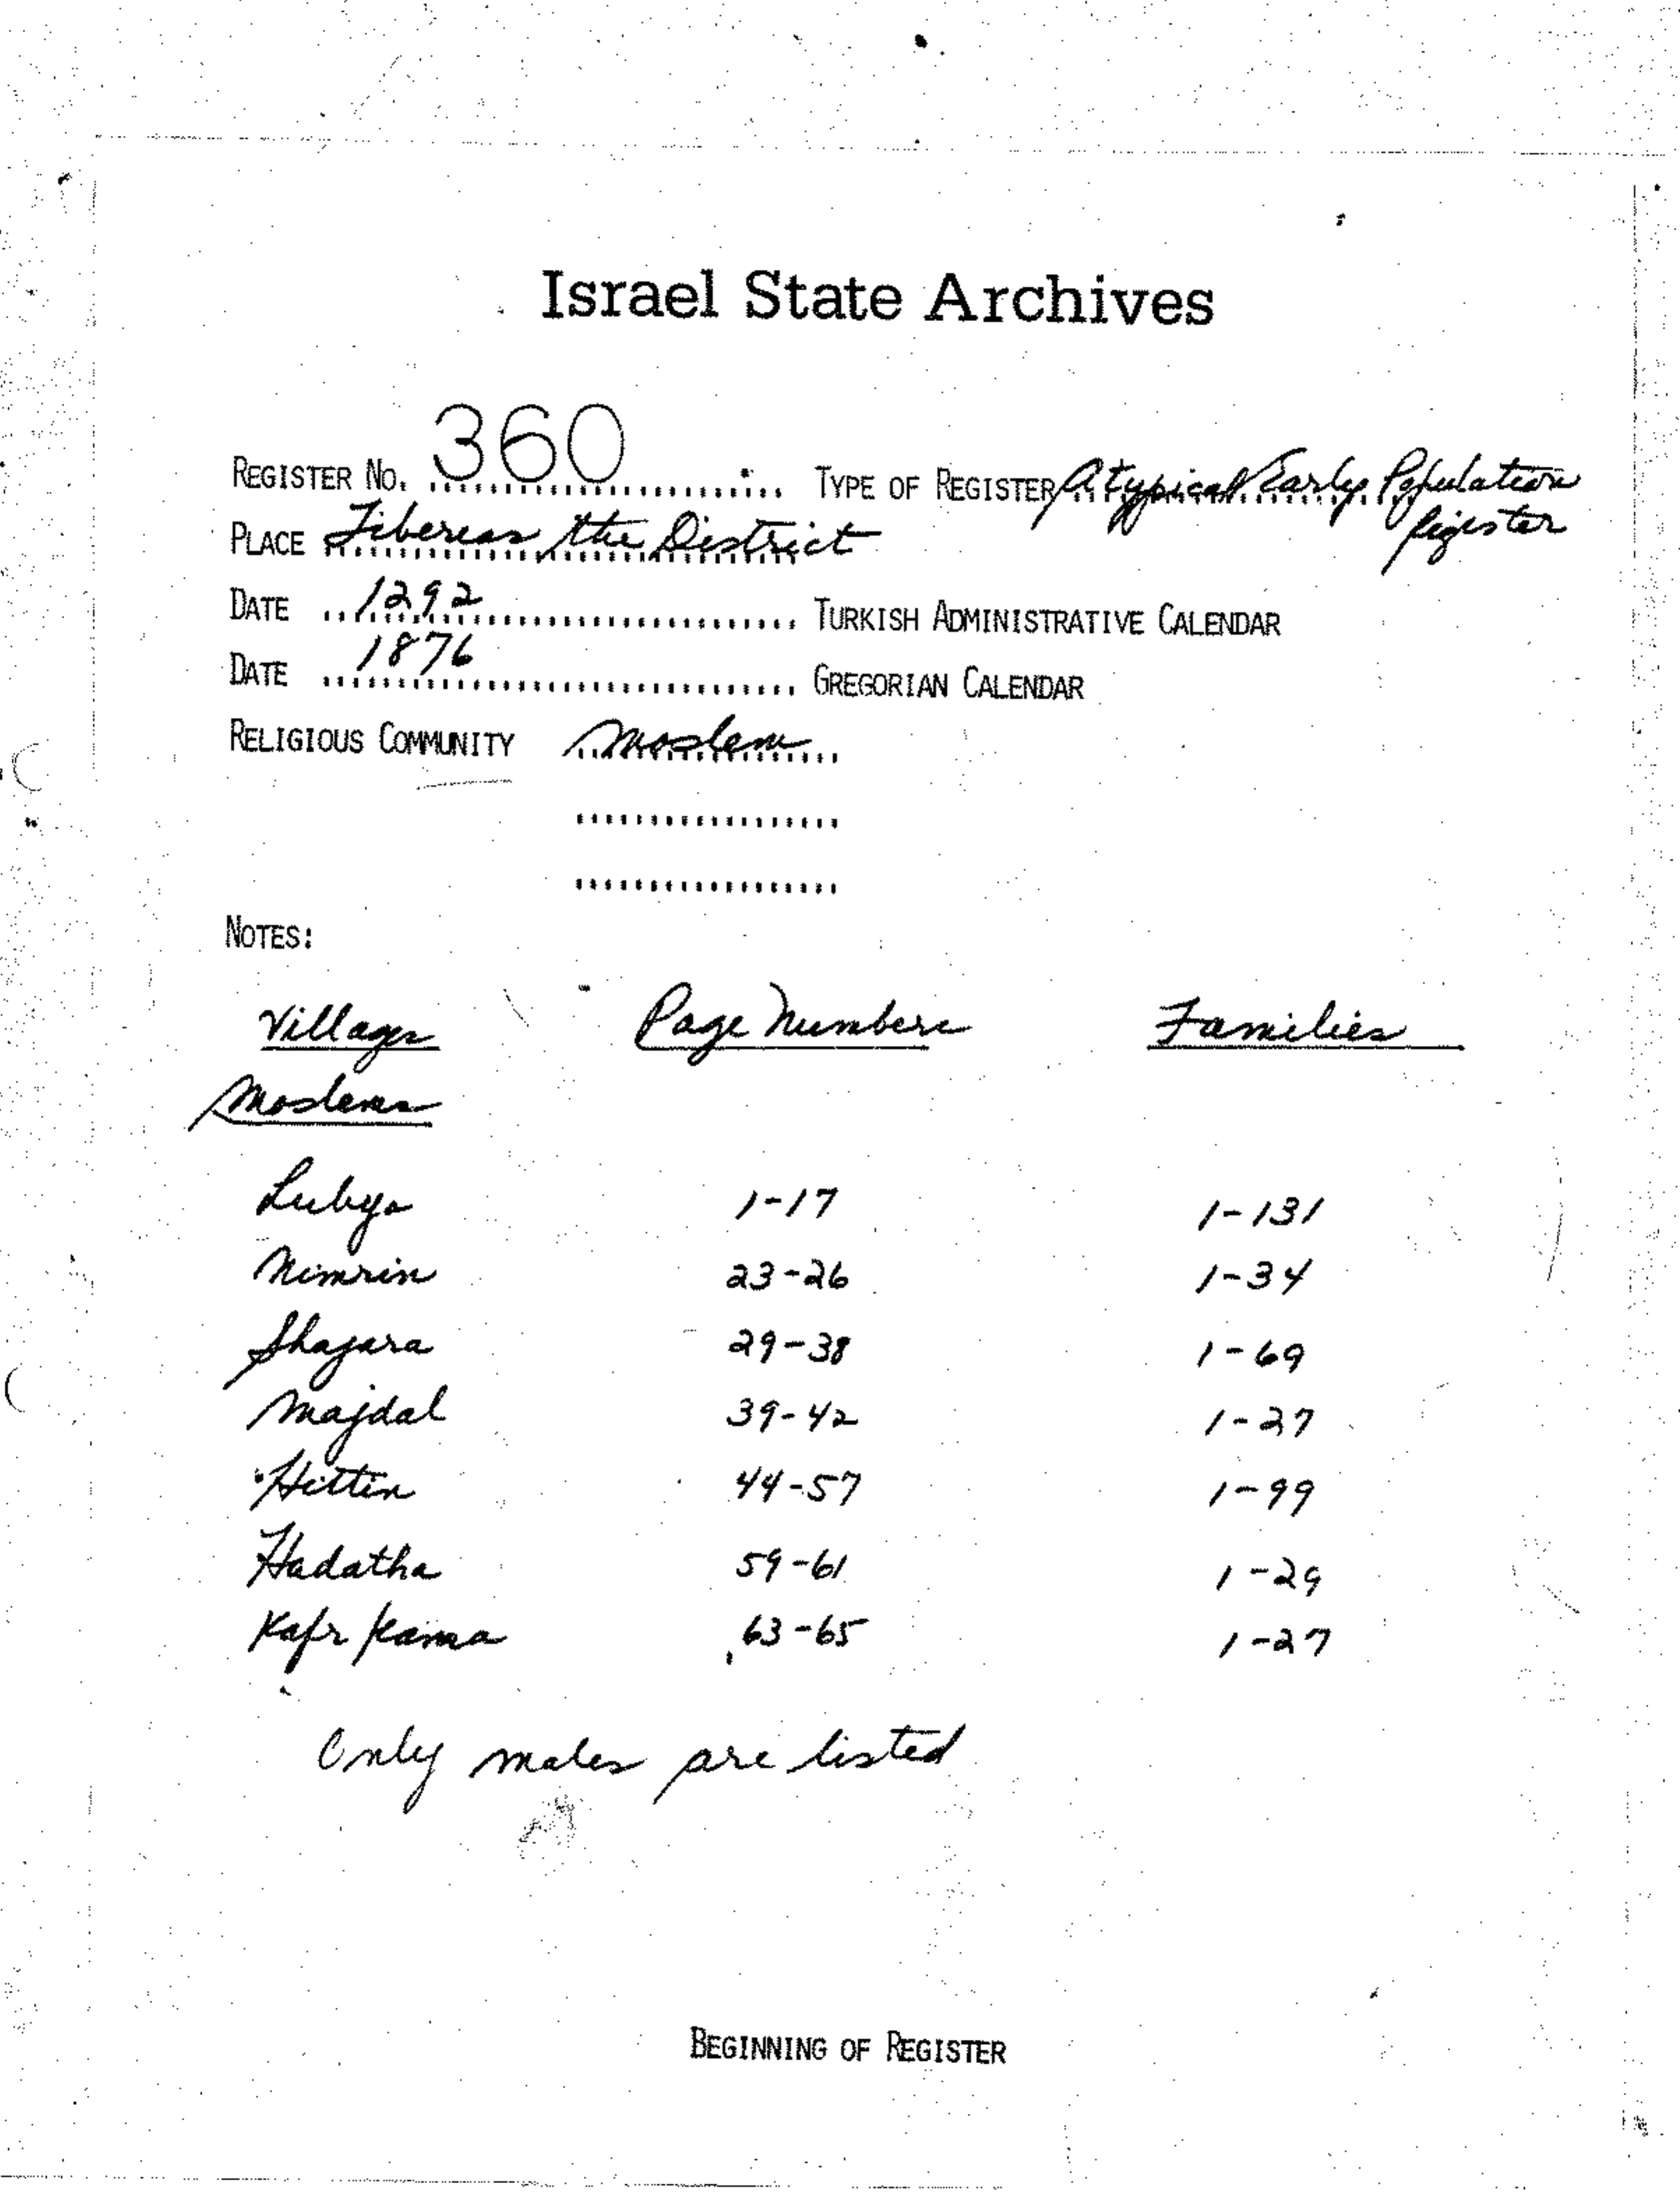 Israel State Archives
REGISTER NO. 360 TYPE OF REGISTER Atypical Early Population Register
PLACE Tiberias, the District
DATE 1292 TURKISH ADMINISTRATIVE CALENDAR
DATE 1876 GREGORIAN CALENDAR
RELIGIOUS COMMUNITY Moslem
NOTES:
Villages Page Numbers Families
Moslems
Lubya 1-17 1-131
Nimrin 23-26 1-34
Shajara 29-38 1-69
Majdal 39-42 1-27
Hittin 44-57 1-99
Hadatha 59-61 1-29
Kafr Kama 63-65 1-27
Only males are listed
BEGINNING OF REGISTER